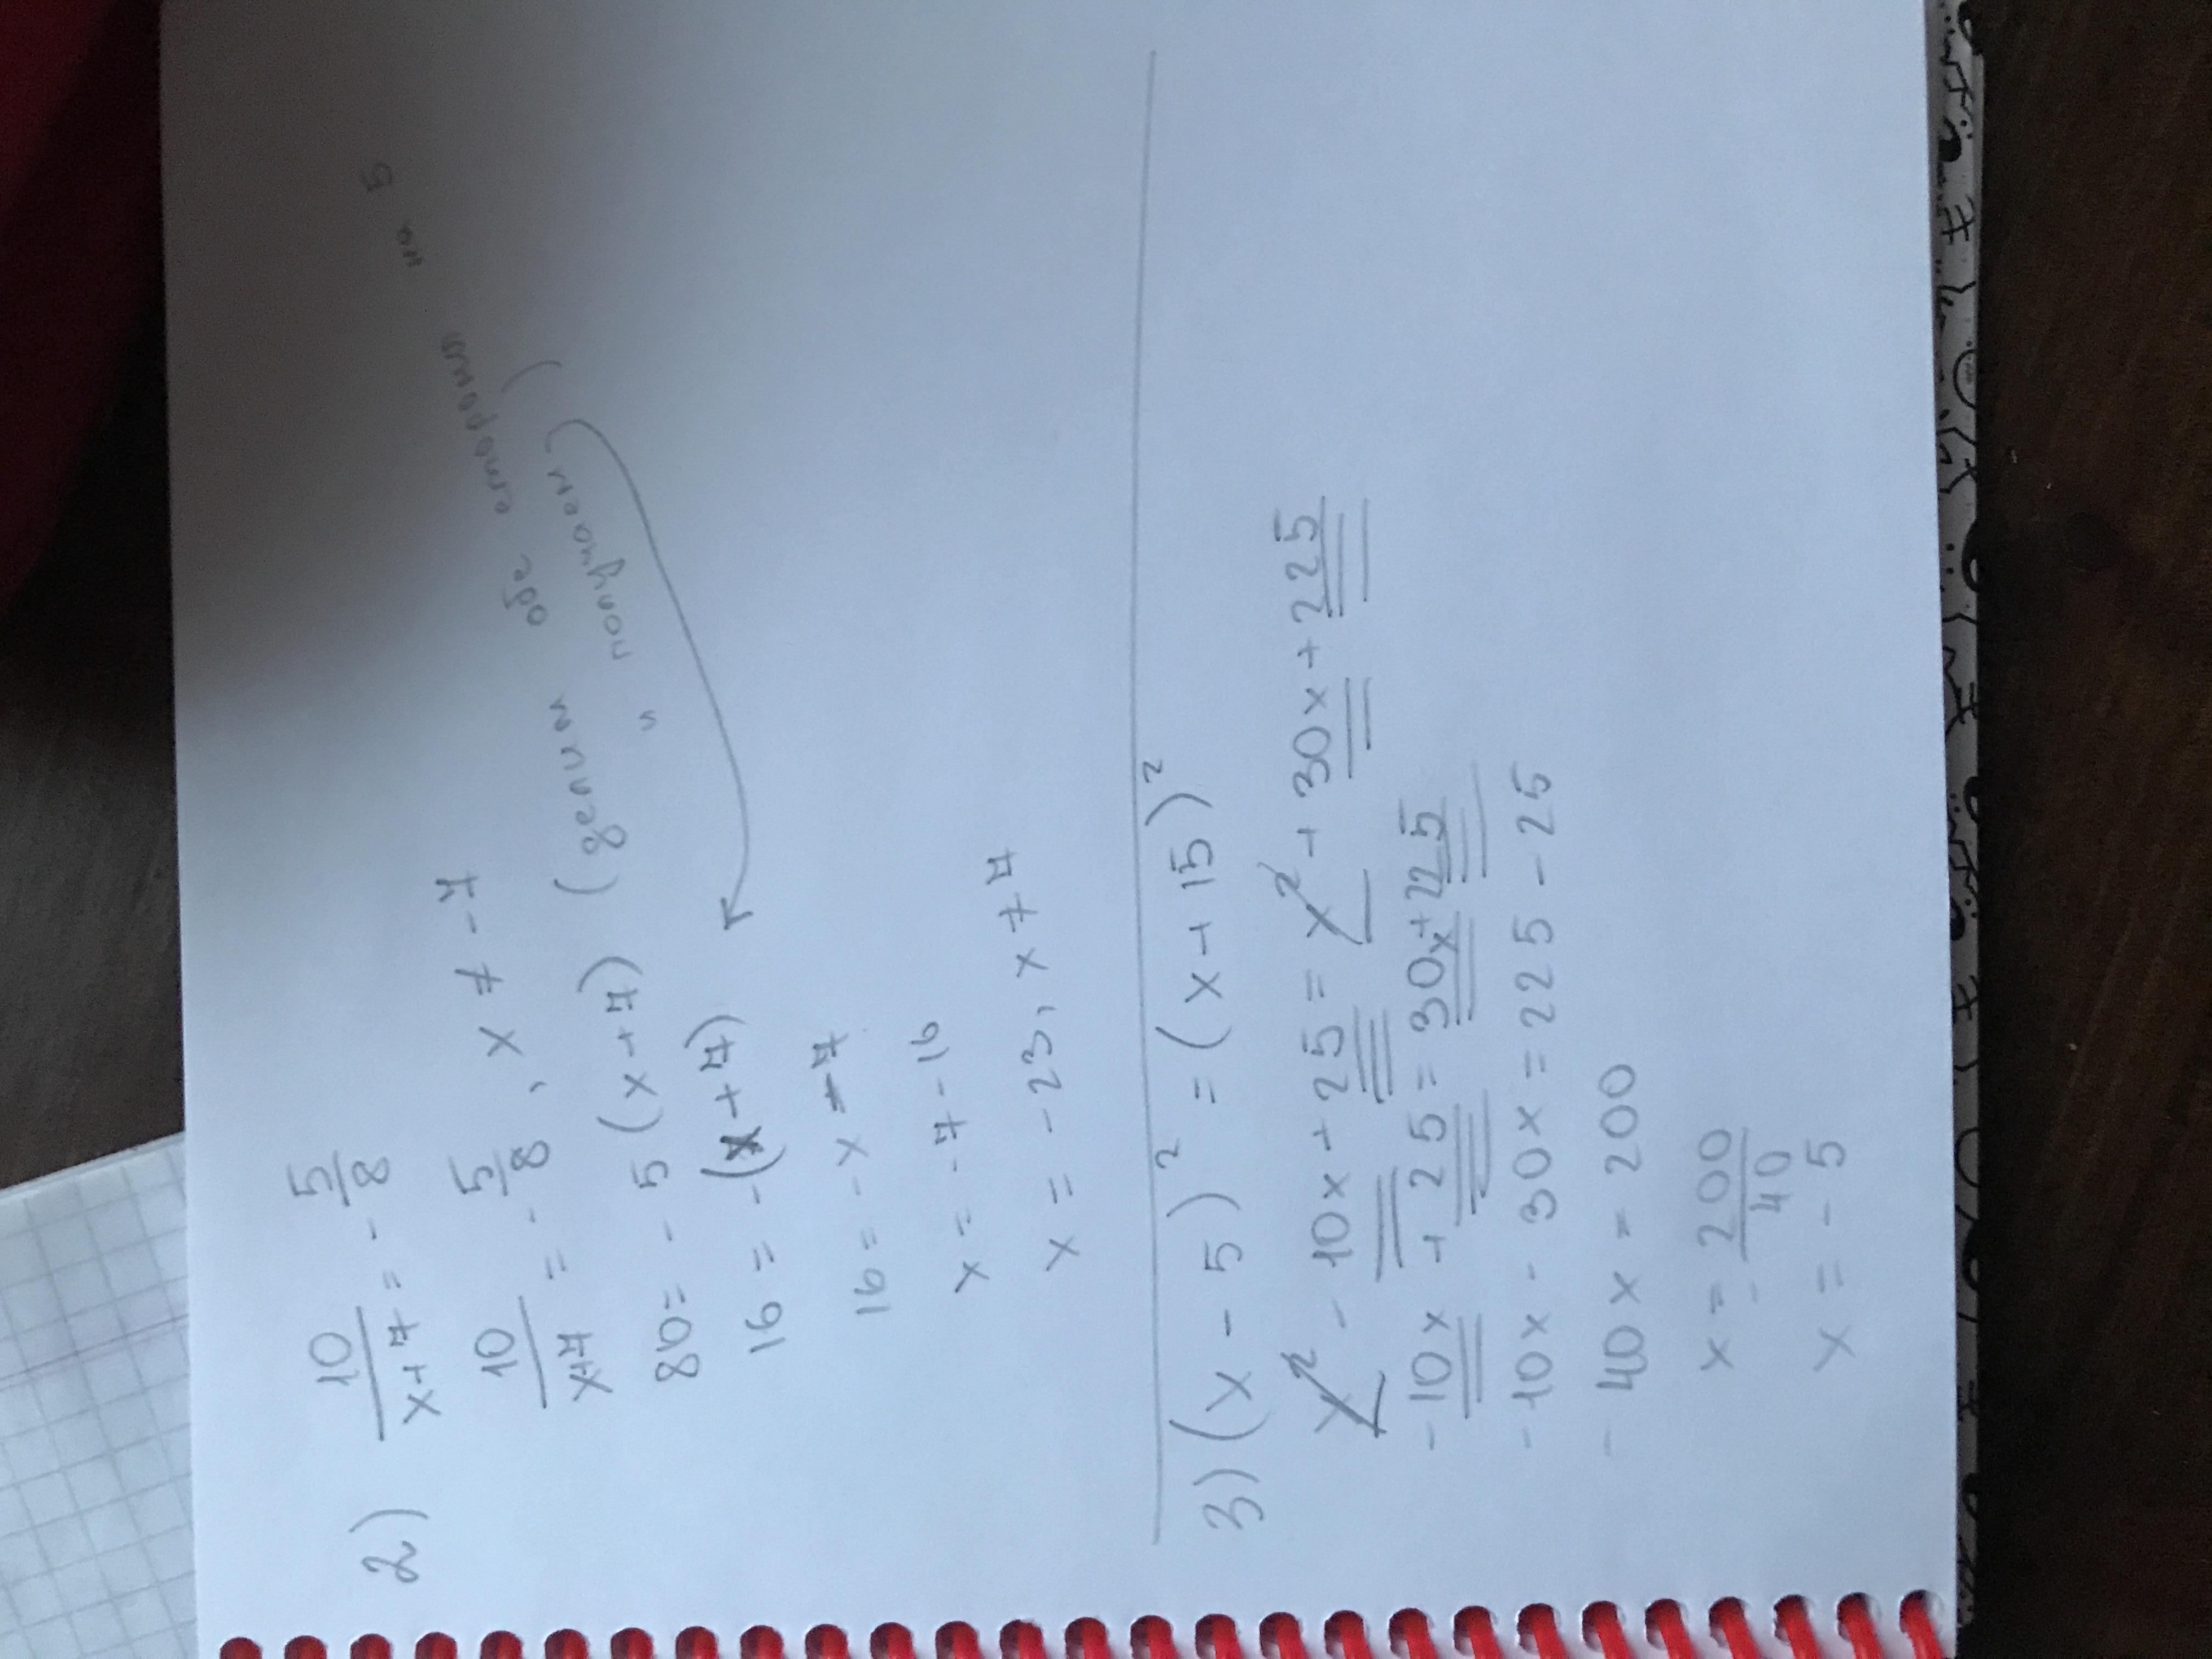 2) 10/x+7 = - 5/8
10/x+7 = - 5/8, x ≠ -7
80 = - 5 (x+7) (делим обе стороны на 5
и получаем)
16 = -(x+7)
16 = -x -7
x = -7-16
x = -23, x ≠ 7
3) (x - 5)² = (x+15)²
x² - 10x + 25 = x² + 30x + 225
-10x + 25 = 30x + 225
-10x - 30x = 225 - 25
- 40x = 200
x = - 200/40
x = -5